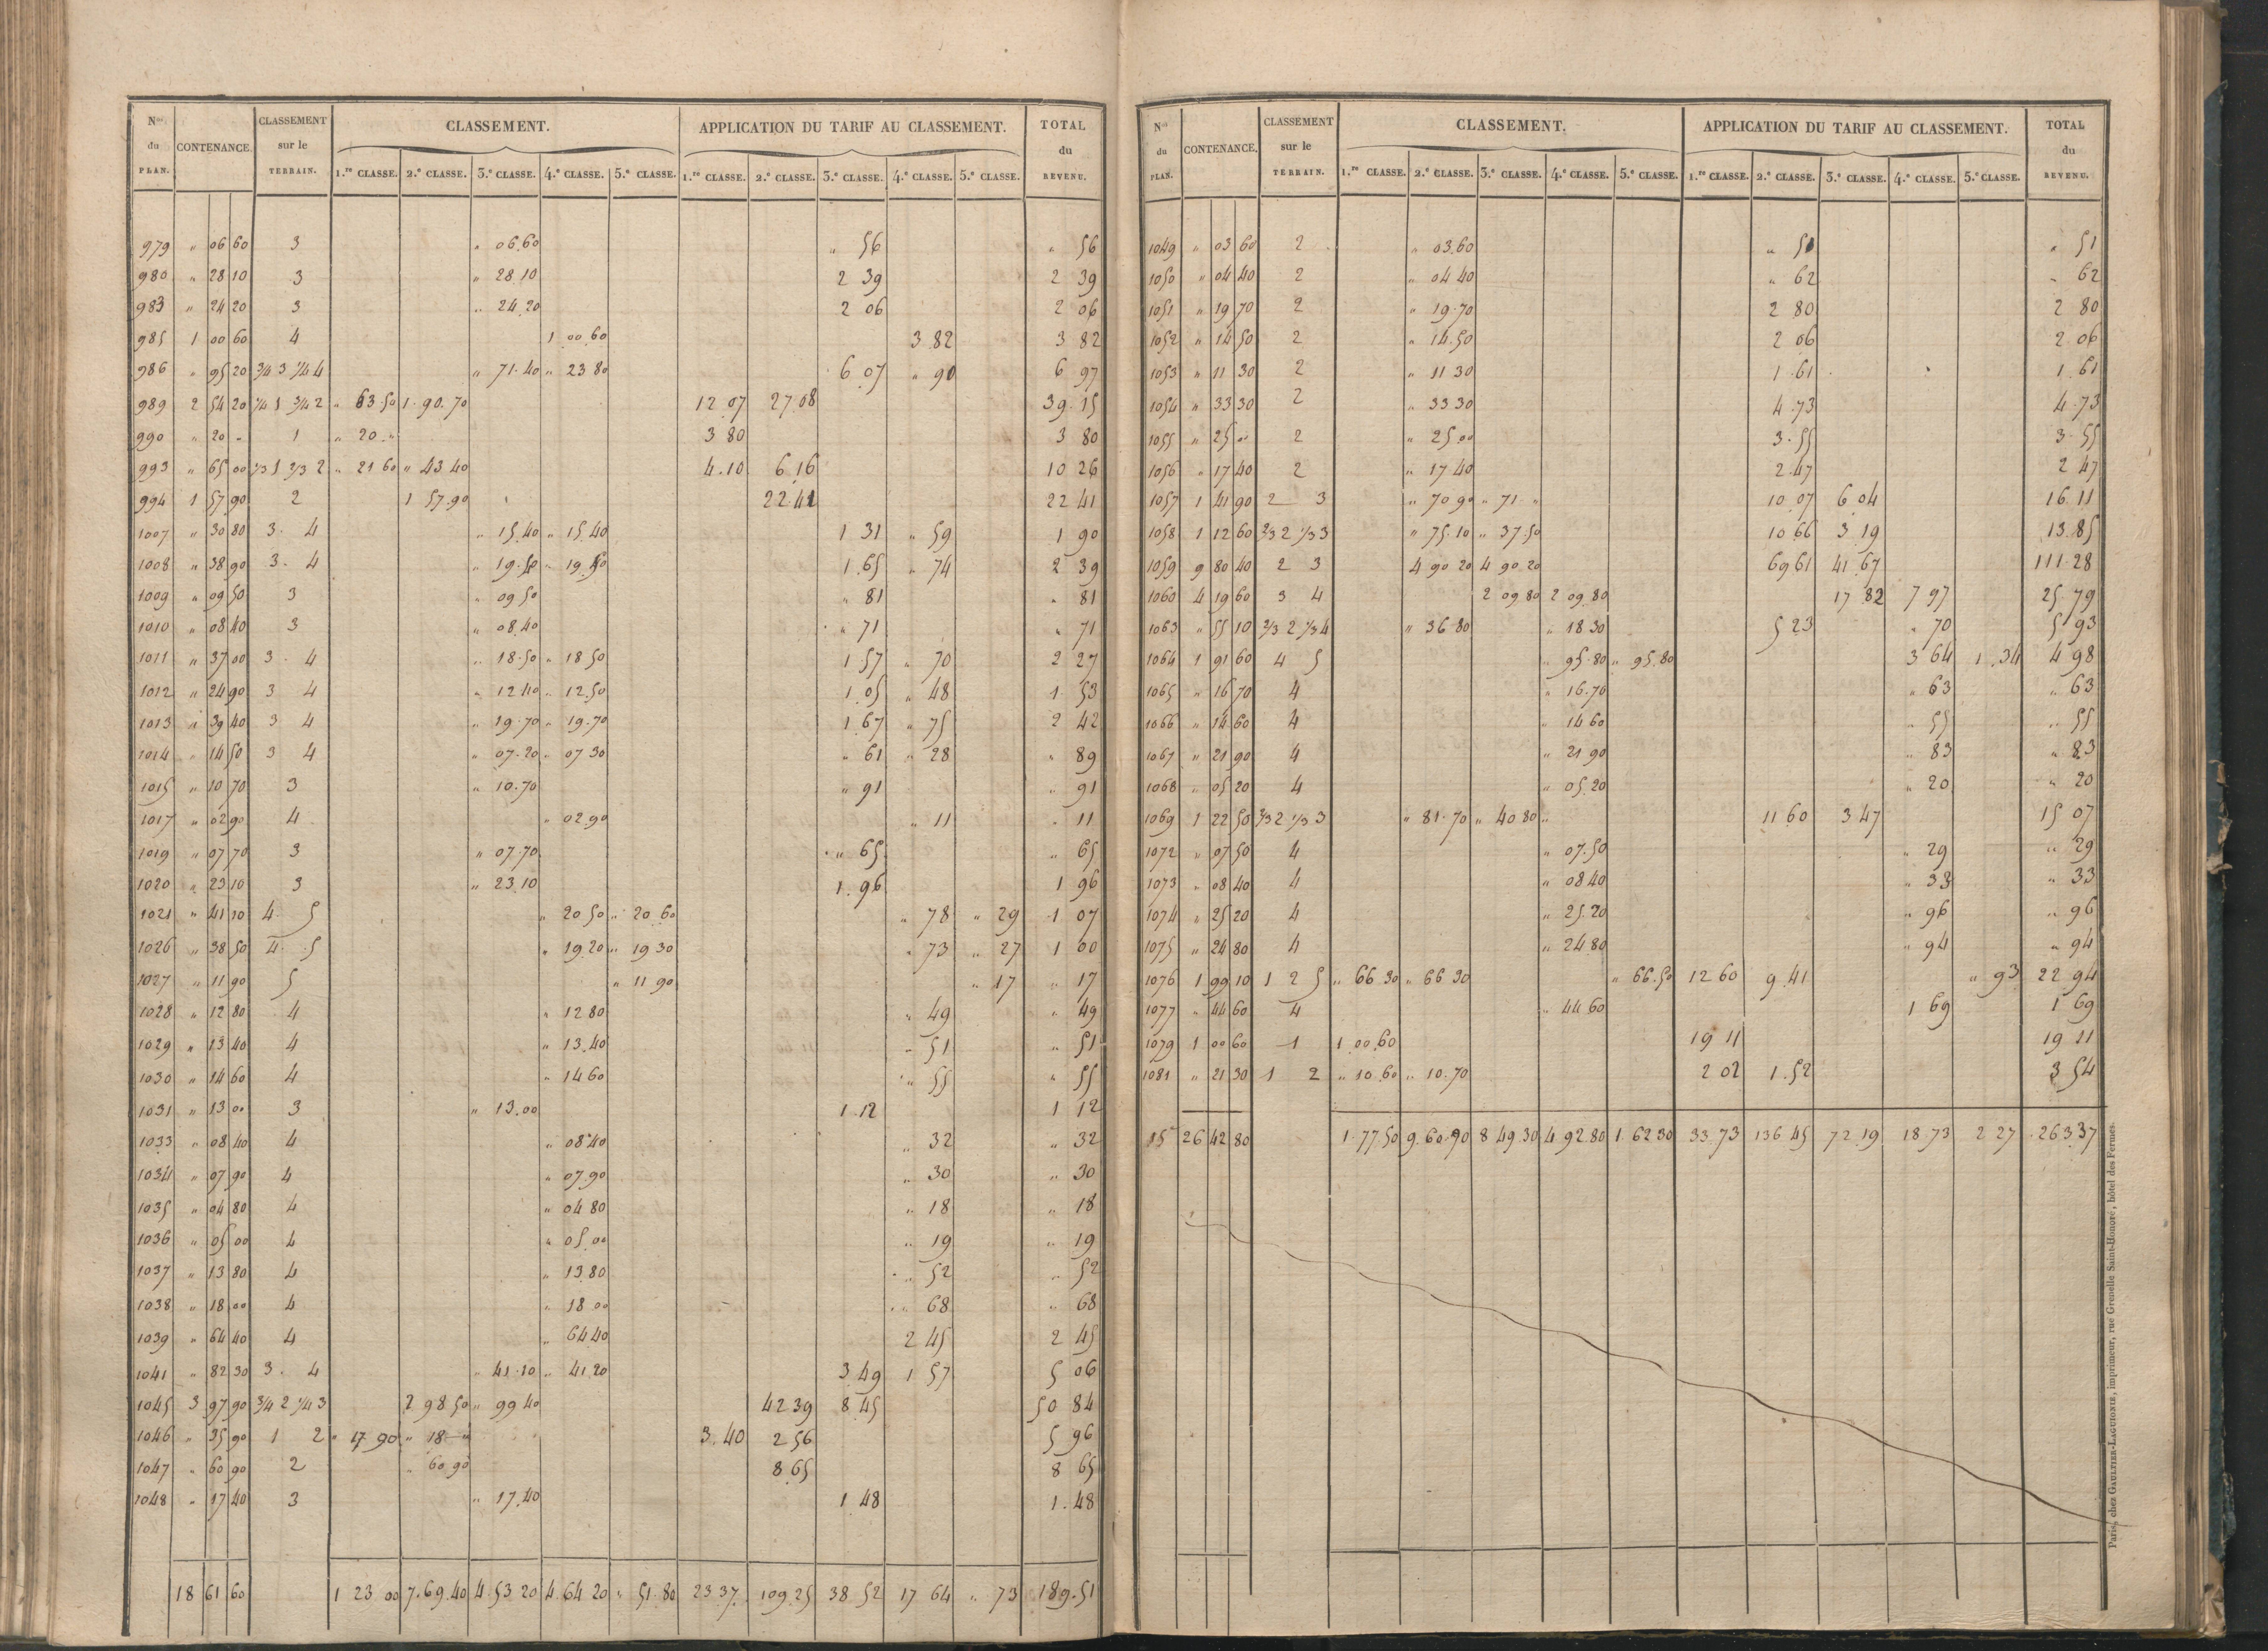 Nos du PLAN. CONTENANCE. CLASSEMENT sur le TERRAIN. CLASSEMENT. APPLICATION DU TARIF AU CLASSEMENT. TOTAL du REVENU.
1.re CLASSE. 2.e CLASSE. 3.e CLASSE. 4.e CLASSE. 5.e CLASSE. 1.re CLASSE. 2.e CLASSE. 3.e CLASSE. 4.e CLASSE. 5.e CLASSE.
979 " 06 60 3 " 06.60 " 56 " 56
980 " 28 10 3 " 28 10 2 39 2 39
983 " 24 20 3 " 24.20 2 06 2 06
985 1 00 60 4 1 00.60 3 82 3 82
986 " 95 20 3/4 3 1/4 4 " 71.40 " 23 80 6 07 " 90 6 97
989 2 54 20 1/4 1 3/4 2 " 63.50 1.90.70 12 07 27.08 39.15
990 " 20 " 1 " 20 " 3 80 3 80
993 " 65 00 1/3 1 2/3 2 " 21 60 " 43 40 4.10 6.16 10 26
994 1 57 90 2 1 57.90 22 41 22 41
1007 " 30 80 3. 4 " 15.40 " 15.40 1 31 " 59 1 90
1008 " 38 90 3. 4 " 19.50 " 19.40 1.65 " 74 2 39
1009 " 09 50 3 " 09 50 " 81 " 81
1010 " 08 40 3 " 08.40 " 71 " 71
1011 " 37 00 3. 4 " 18.50 " 18 50 1 57 " 70 2 27
1012 " 24 90 3 4 " 12 40 " 12.50 1.05 " 48 1 53
1013 " 39 40 3 4 " 19.70 " 19.70 1.67 " 75 2 42
1014 " 14 50 3 4 " 07.20 " 07 30 " 61 " 28 " 89
1015 " 10 70 3 " 10.70 " 91 " 91
1017 " 02 90 4 " 02.90 " 11 " 11
1019 " 07 70 3 " 07.70 " 65 " 65
1020 " 23 10 3 " 23.10 1.96 1 96
1021 " 41 10 4 5 " 20 50 " 20 60 " 78 " 29 1 07
1026 " 38 50 4 5 " 19.20 " 19 30 " 73 " 27 1 00
1027 " 11 90 5 " 11 90 " 17 " 17
1028 " 12 80 4 " 12 80 " 49 " 49
1029 " 13 40 4 " 13.40 " 51 " 51
1030 " 14 60 4 " 14 60 " 55 " 55
1031 " 13 00 3 " 13.00 1 12 1 12
1033 " 08 40 4 " 08 40 " 32 " 32
1034 " 07 90 4 " 07.90 " 30 " 30
1035 " 04 80 4 " 04 80 " 18 " 18
1036 " 05 00 4 " 05.00 " 19 " 19
1037 " 13 80 4 " 13.80 " 52 " 52
1038 " 18 00 4 " 18 00 " 68 " 68
1039 " 64 40 4 " 64 40 2 45 2 45
1041 " 82 30 3. 4 " 41.10 " 41.20 3.49 1 57 5 06
1045 3 97 90 3/4 2 1/4 3 2 98.50 " 99 40 42 39 8 45 50 84
1046 " 35 90 1 2 " 17 90 " 18 " 3.40 2 56 5 96
1047 " 60 90 2 " 60.90 8 65 8 65
1048 " 17 40 3 " 17.40 1 48 1.48
18 61 60 1 23 00 7.69.40 4.53 20 4.64 20 " 51.80 23 37. 109.25 38 52 17 64 " 73 189.51
Nos du PLAN. CONTENANCE. CLASSEMENT sur le TERRAIN. CLASSEMENT. APPLICATION DU TARIF AU CLASSEMENT. TOTAL du REVENU.
1.re CLASSE. 2.e CLASSE. 3.e CLASSE. 4.e CLASSE. 5.e CLASSE. 1.re CLASSE. 2.e CLASSE. 3.e CLASSE. 4.e CLASSE. 5.e CLASSE.
1049 " 03 60 2 " 03.60 " 51 " 51
1050 " 04 40 2 " 04 40 " 62 " 62
1051 " 19 70 2 " 19.70 2 80 2 80
1052 " 14 50 2 " 14.50 2 06 2.06
1053 " 11 30 2 " 11 30 1.61 1.61
1054 " 33 30 2 " 33 30 4.73 4.73
1055 " 25 " 2 " 25.00 3.55 3.55
1056 " 17 40 2 " 17.40 2.47 2 47
1057 1 41 90 2 3 " 70 90 " 71 " 10.07 6 04 16.11
1058 1 12 60 2/3 2 1/3 3 " 75.10 " 37.50 10 66 3 19 13.85
1059 9 80 40 2 3 4 90 20 4 90.20 69 61 41.67 111.28
1060 4 19 60 3 4 2 09 80 2 09.80 17 82 7 97 25.79
1063 " 55 10 2/3 2 1/3 4 " 36 80 " 18 30 5 23 " 70 5 93
1064 1 91 60 4 5 " 95.80 " 95.80 3 64 1.34 4 98
1065 " 16 70 4 " 16.70 " 63 " 63
1066 " 14 60 4 " 14 60 " 55 " 55
1067 " 21 90 4 " 21 90 " 83 " 83
1068 " 05 20 4 " 05.20 " 20 " 20
1069 1 22 50 2/3 2 1/3 3 " 81.70 " 40 80 " 11 60 3 47 15 07
1072 " 07 50 4 " 07.50 " 29 " 29
1073 " 08 40 4 " 08 40 " 33 " 33
1074 " 25 20 4 " 25.20 " 96 " 96
1075 " 24 80 4 " 24 80 " 94 " 94
1076 1 99 10 1 2 5 " 66 30 " 66 30 " 66.50 12 60 9.41 " 93 22 94
1077 " 44 60 4 " 44 60 1 69 1 69
1079 1 00 60 1 1.00.60 19 11 19 11
1081 " 21 30 1 2 " 10.60 " 10.70 2 02 1.52 3 54
15 26 42 80 1.77.50 9.60.90 8 49.30 4 92.80 1.62 30 33.73 136 45 72.19 18.73 2 27 263.37
Paris, chez GAULTIER-LAGUIONIE, imprimeur, rue Grenelle Saint-Honoré, hôtel des Fermes.